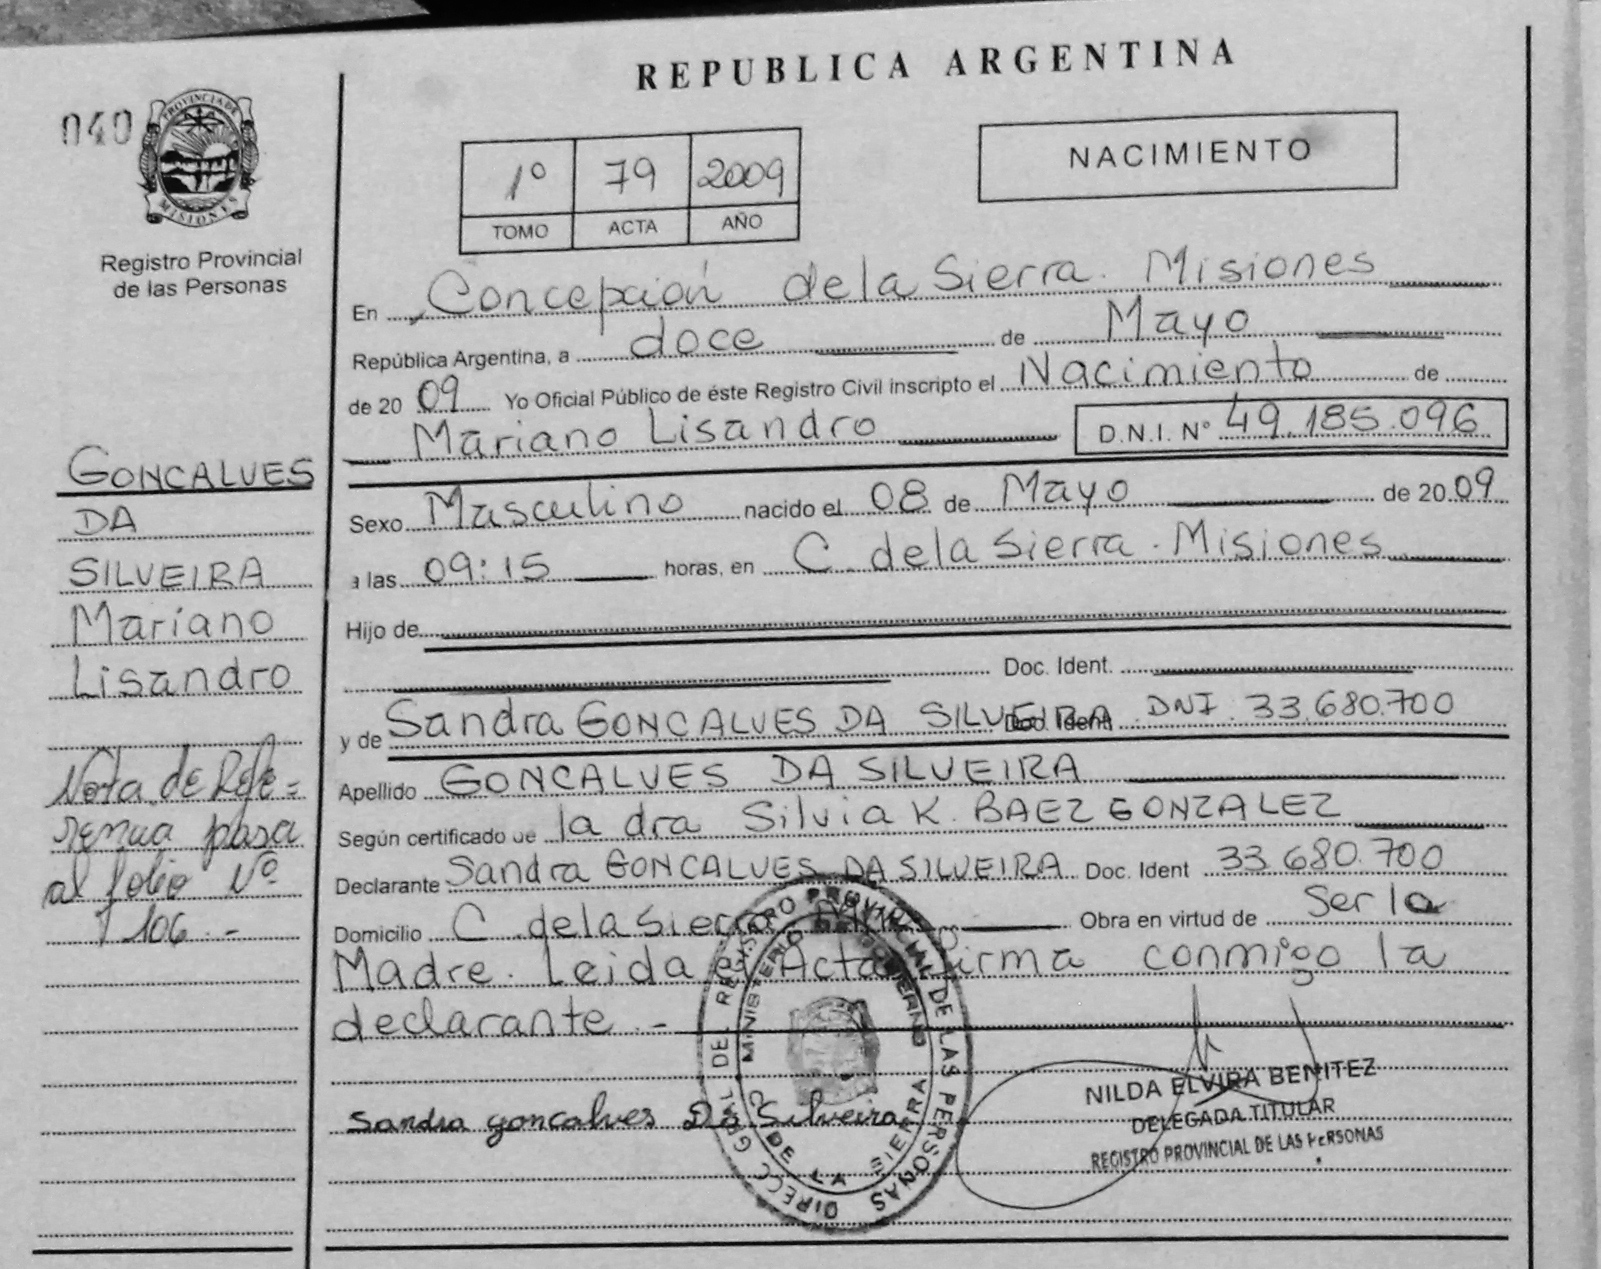 REPUBLICA ARGENTINA
040
PROVINCIA DE
MISIONES
Registro Provincial
de las Personas
1º 79 2009
TOMO ACTA AÑO
NACIMIENTO
En Concepción de la Sierra. Misiones
República Argentina, a doce de Mayo
de 20 09 Yo Oficial Público de éste Registro Civil inscripto el Nacimiento de
Mariano Lisandro D.N.I. Nº 49.185.096
Sexo Masculino nacido el 08 de Mayo de 20 09
a las 09:15 horas, en C. de la Sierra. Misiones
Hijo de
Doc. Ident.
y de Sandra GONCALVES DA SILVEIRA Doc. Ident DNI. 33.680.700
Apellido GONCALVES DA SILVEIRA
Según certificado de la dra Silvia K. BAEZ GONZALEZ
Declarante Sandra GONCALVES DA SILVEIRA Doc. Ident 33.680.700
Domicilio C. de la Sierra Obra en virtud de Ser la
Madre. Leida el Acta firma conmigo la
declarante.-
Sandra gonçalves Da Silveira
GONCALVES
DA
SILVEIRA
Mariano
Lisandro
Nota de Refe=
rencia pasa
al folio Nº
106.-
DIRECC. GRAL. DEL REGISTRO PROVINCIAL DE LAS PERSONAS
MINISTERIO DE GOBIERNO
C. DE LA SIERRA
NILDA ELVIRA BENITEZ
DELEGADA TITULAR
REGISTRO PROVINCIAL DE LAS PERSONAS